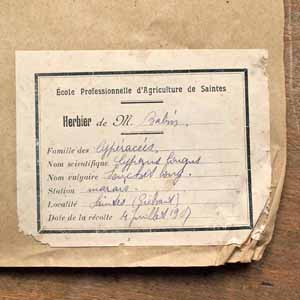 École Professionnelle d'Agriculture de Saintes
Herbier de M. Babin.
Famille des Cypéracées.
Nom scientifique Cyperus longus
Nom vulgaire souchet long.
Station marais.
Localité Saintes
Date de la récolte 4 juillet